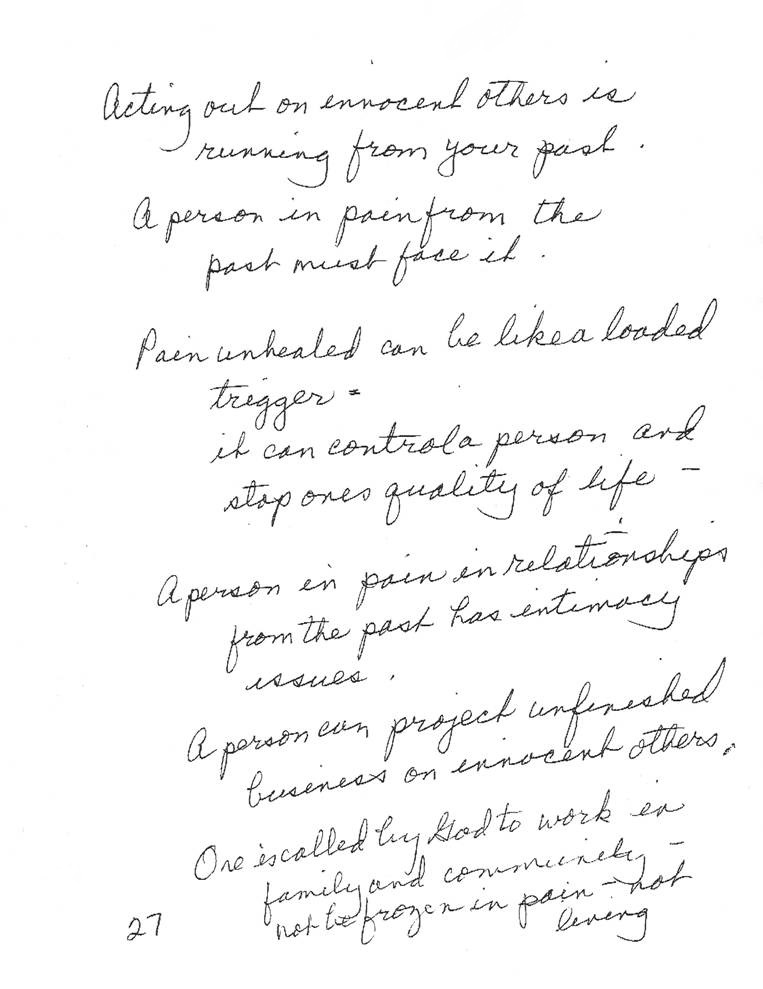 Acting out on innocent others is
running from your past.
A person in pain from the
past must face it.
Pain unhealed can be like a loaded
trigger =
it can control a person and
stop ones quality of life -
A person in pain in relationships
from the past has intimacy
issues.
A person can project unfinished
business on innocent others.
One is called by God to work in
family and community -
not be frozen in pain - not
living
27